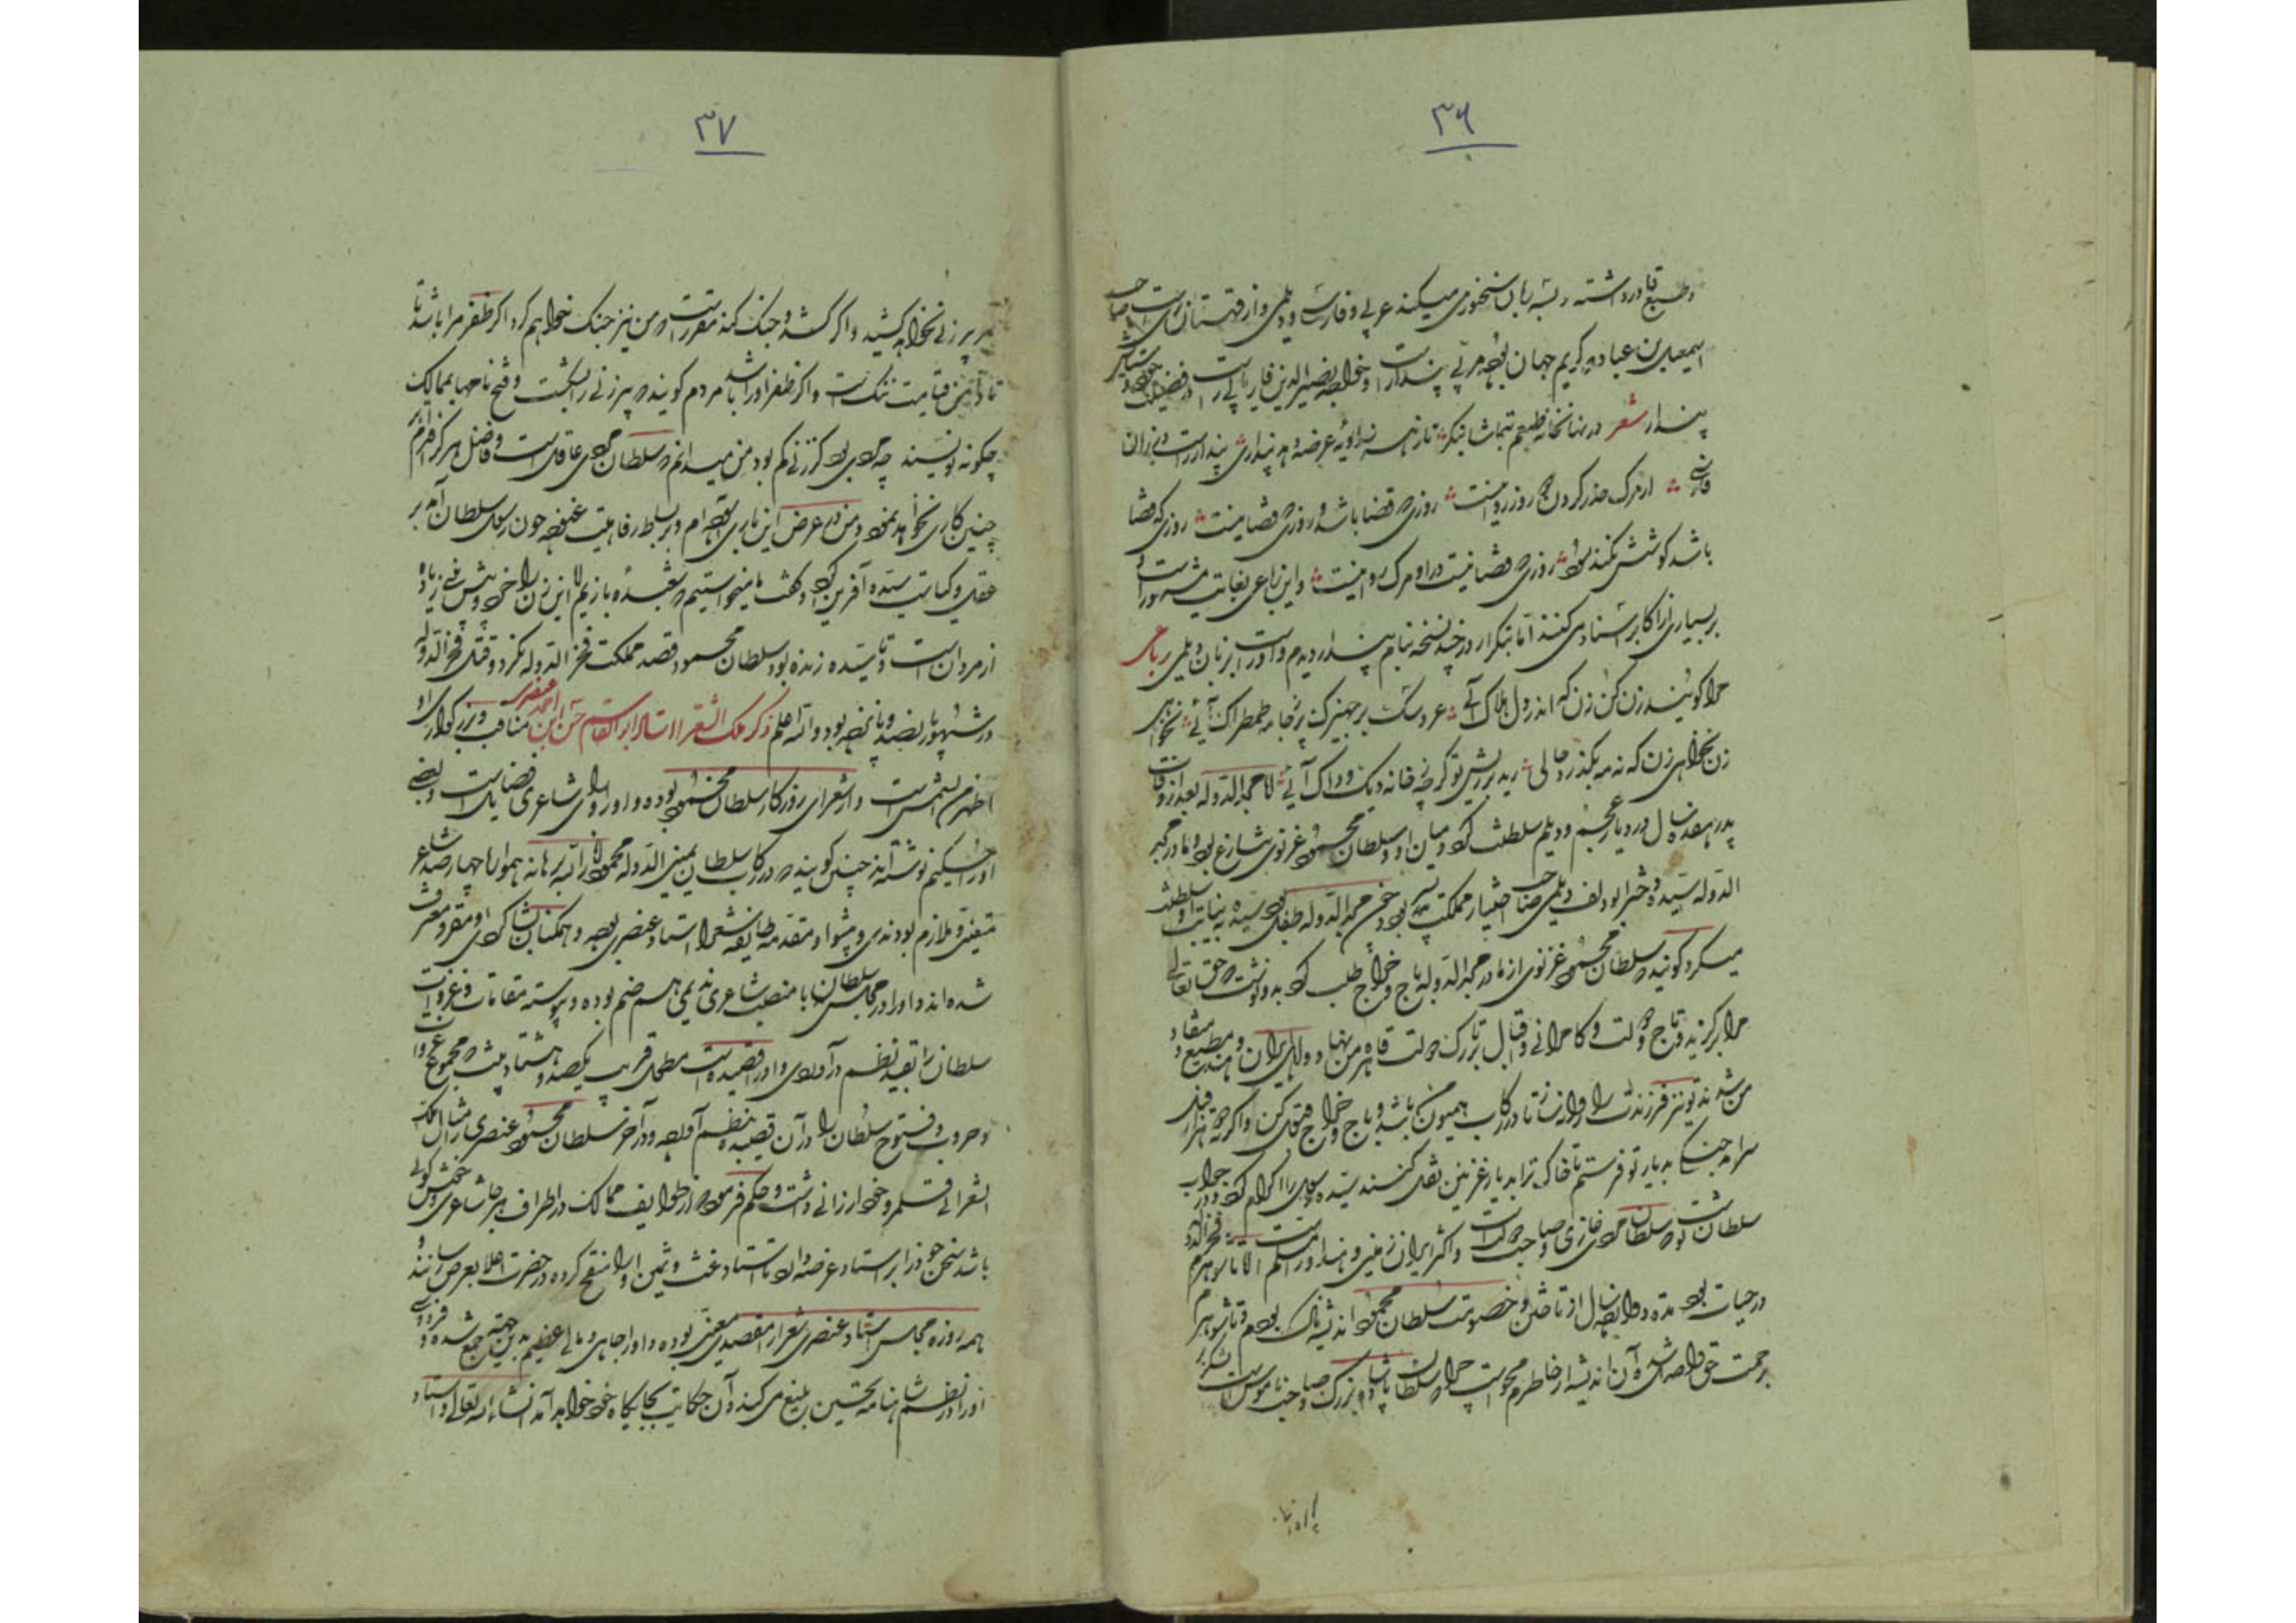 ۳۶
و طبع قادر داشته و بسه زبان سخنوری میکند عربی و فارسی و دیلمی و از قهستان ری است صاحب
اسمعیل بن عباد که کریم جهان بوده مربی پندار است و خواجه ظهیرالدین فاریابی راست در فضیلت خود و ستایش
پندار شعر در نهانخانه طبعم بتماشا بنگر تا ز هر زاویه عرضه دهد پنداری پندار راست در زبان
فارسی از مرگ حذر کردن دو روز روا نیست روزی که قضا باشد و روزی که قضا نیست روزی که قضا
باشد کوشش نکند سود روزی که قضا نیست در او مرگ روا نیست و این رباعی بغایت مشهور است و
بر بسیاری از اکابر اسناد می کنند اما بتکرار در چند نسخه بنام پندار دیدم و او راست بزبان دیلمی رباعی
مرا گویند زن کن زن که اندر دل هلاک آئی عروسک بر جهیزک پر ز جامه طمطراک آئی نخواهی
زن نخواهی زن که نه مه بگذرد حالی ریه بر ریش تو گر چه خانه دیک و داک آئی اما مجدالدوله بعد از وفات
پدر هفده سال در دیار عجم و دیلم سلطنت کرد و میان او و سلطان محمود غزنوی تنازع بود و مادر مجد
الدوله سیده دختر ابو دلف دیلمی صاحب اختیار مملکت پسر بود چون مجدالدوله طفل بود سیده به نیابت او سلطنت
میکرد گویند که سلطان محمود غزنوی از مادر مجدالدوله باج و خراج طلب کرد بدو نوشت که حق تعالی
مرا برگزید و تاج دولت و کامرانی و اقبال بر تارک دولت قاهره من نهاد و اهالی ایران و هند مطیع و منقاد
من شدند تو نیز فرزندت را روانه ساز تا در رکاب همیون باشد و باج و خراج قبول کن و اگر نه دو هزار فیل
سرامد جنگی بدیار تو فرستم تا خاک ترا بدیار غزنین نقل کنند سیده رسول را اکرام کرد و در جواب
سلطان نوشت که سلطان مردی غازی و صاحب دولت است و اکثر ایران زمین و هند او را مسلم است اما تا شوهرم فخرالدوله
در حیات بود مدت دوازده سال از تاختن و خصومت سلطان محمود اندیشناک بودم و تا شوهرم
برحمت حق واصل شد آن اندیشه از خاطرم محو است چرا که سلطان پادشاه بزرگ و صاحب ناموس است لشکر
۳۷
بر سر پیرزنی نخواهد کشید و اگر لشکر کشد و جنگ کند مقرر است که من نیز جنگ خواهم کرد اگر ظفر مرا باشد تا
تا دامن قیامت ننگ است و اگر ظفر او را باشد مردم گویند که پیرزنی را شکست و فتح نامها بممالک
چگونه نویسند چه مردی بود کز زنی کم بود من میدانم که سلطان مردی عاقل است و فاضل هرگز اقدام بر
چنین کاری نخواهد نمود و من در عرض این بازی آسوده ام و بر بساط رفاهیت غنوده چون رسول سلطان آمد بر
عقل و کفایت سیده آفرین کرد و گفت ما میخواستیم که بشعبده بازیم اما این زن را خرد و بینش بیش زیاده
از مردان است و تا سیده زنده بود سلطان محمود قصد مملکت فخرالدوله نکرد و قتل فخرالدوله
در شهور پانصد و پانزده بود والله اعلم ذکر ملک الشعرا استاد ابوالقاسم حسن ابن احمد عنصری مناقب و بزرگواری او
اظهر من الشمس است و از شعرای روزگار سلطان محمود بوده و او را ورای شاعری فضایل است و بعضی
او را حکیم نوشته اند چنین گویند که در رکاب سلطان یمین الدوله محمود انار الله برهانه همواره چهارصد شاعر
متعین ملازم بودندی و پیشوا و مقدم طایفه شعرا استاد عنصری بوده و همگنان بشاگردی او مقر و معترف
شده اند و او را در مجلس سلطان با منصب شاعری ندیمی هم ضم بوده و پیوسته مقامات و غزوات
سلطان را بقید نظم درآوردی و او را قصیده است مطول قریب یکصد و هشتاد بیت که مجموع غزوات
و حروب و فتوح سلطان را در آن قصیده بنظم آورده و در آخر سلطان محمود عنصری را مثال ملک
الشعرائی قلمرو خود ارزانی داشت و حکم فرمود که از طوایف ممالک در اطراف هر جا شاعری و خوش گوئی
باشد سخن خود را بر استاد عرضه دارد تا استاد غث و ثمین او را منقح کرده در حضرت اعلا بعرض رسانند و
همه روزه مجلس استاد عنصری شعرا را مقصدی معین بوده و او را جاهی و مالی عظیم بدین جهت جمع شده و فردوسی
او را در نظم شاهنامه تحسین بلیغ می کند و آن حکایت بجایگاه خود خواهد آمد انشاءالله تعالی و استاد